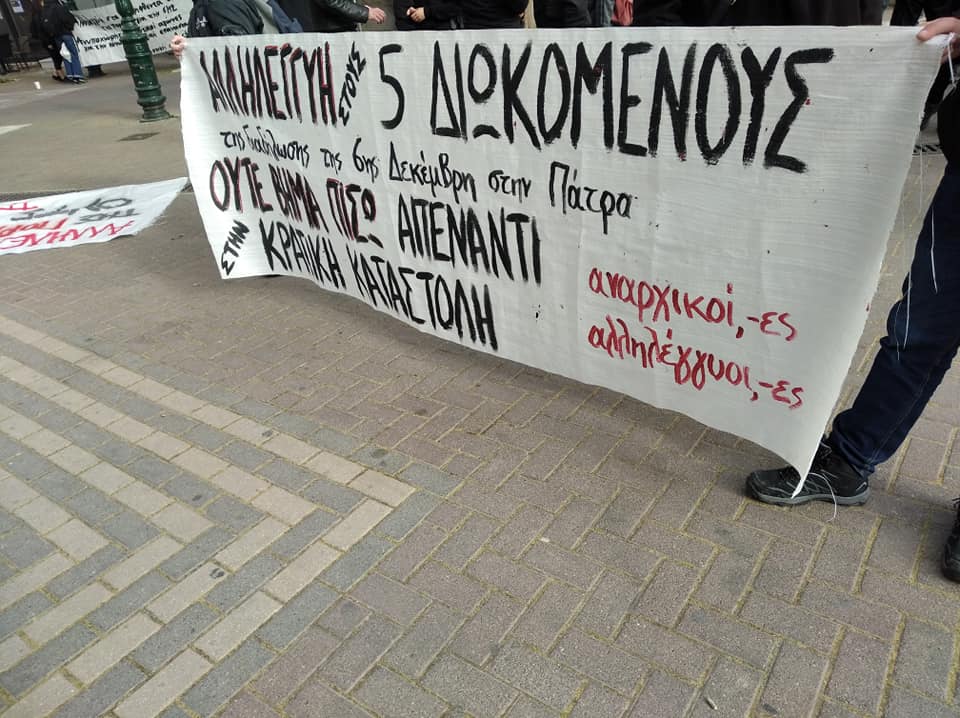 ΑΛΛΗΛΕΓΓΥΗ ΣΤΟΥΣ 5 ΔΙΩΚΟΜΕΝΟΥΣ
της διαδήλωσης της 6ης Δεκέμβρη στην Πάτρα
ΟΥΤΕ ΒΗΜΑ ΠΙΣΩ ΑΠΕΝΑΝΤΙ
ΣΤΗΝ ΚΡΑΤΙΚΗ ΚΑΤΑΣΤΟΛΗ
αναρχικοί,-ες
αλληλέγγυοι,-ες